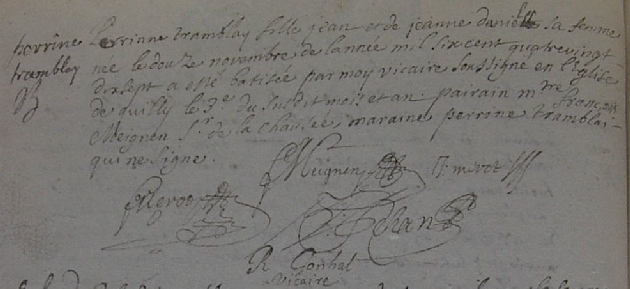 perrine
tramblay
perrinne tramblay fille jean et de jeanne danielle sa femme
nee le douze novembre de lannee mil six cent quatre vingt
dix sept a este batisée par moy vicaire soussigné en l'eglise
de quilly le d.e du susdit mois et an. pairain m.tre françois
Meignen s.r de la Chaisée, maraine perrine tramblai
qui ne signe.
Meignen
R Gonhal
vicaire